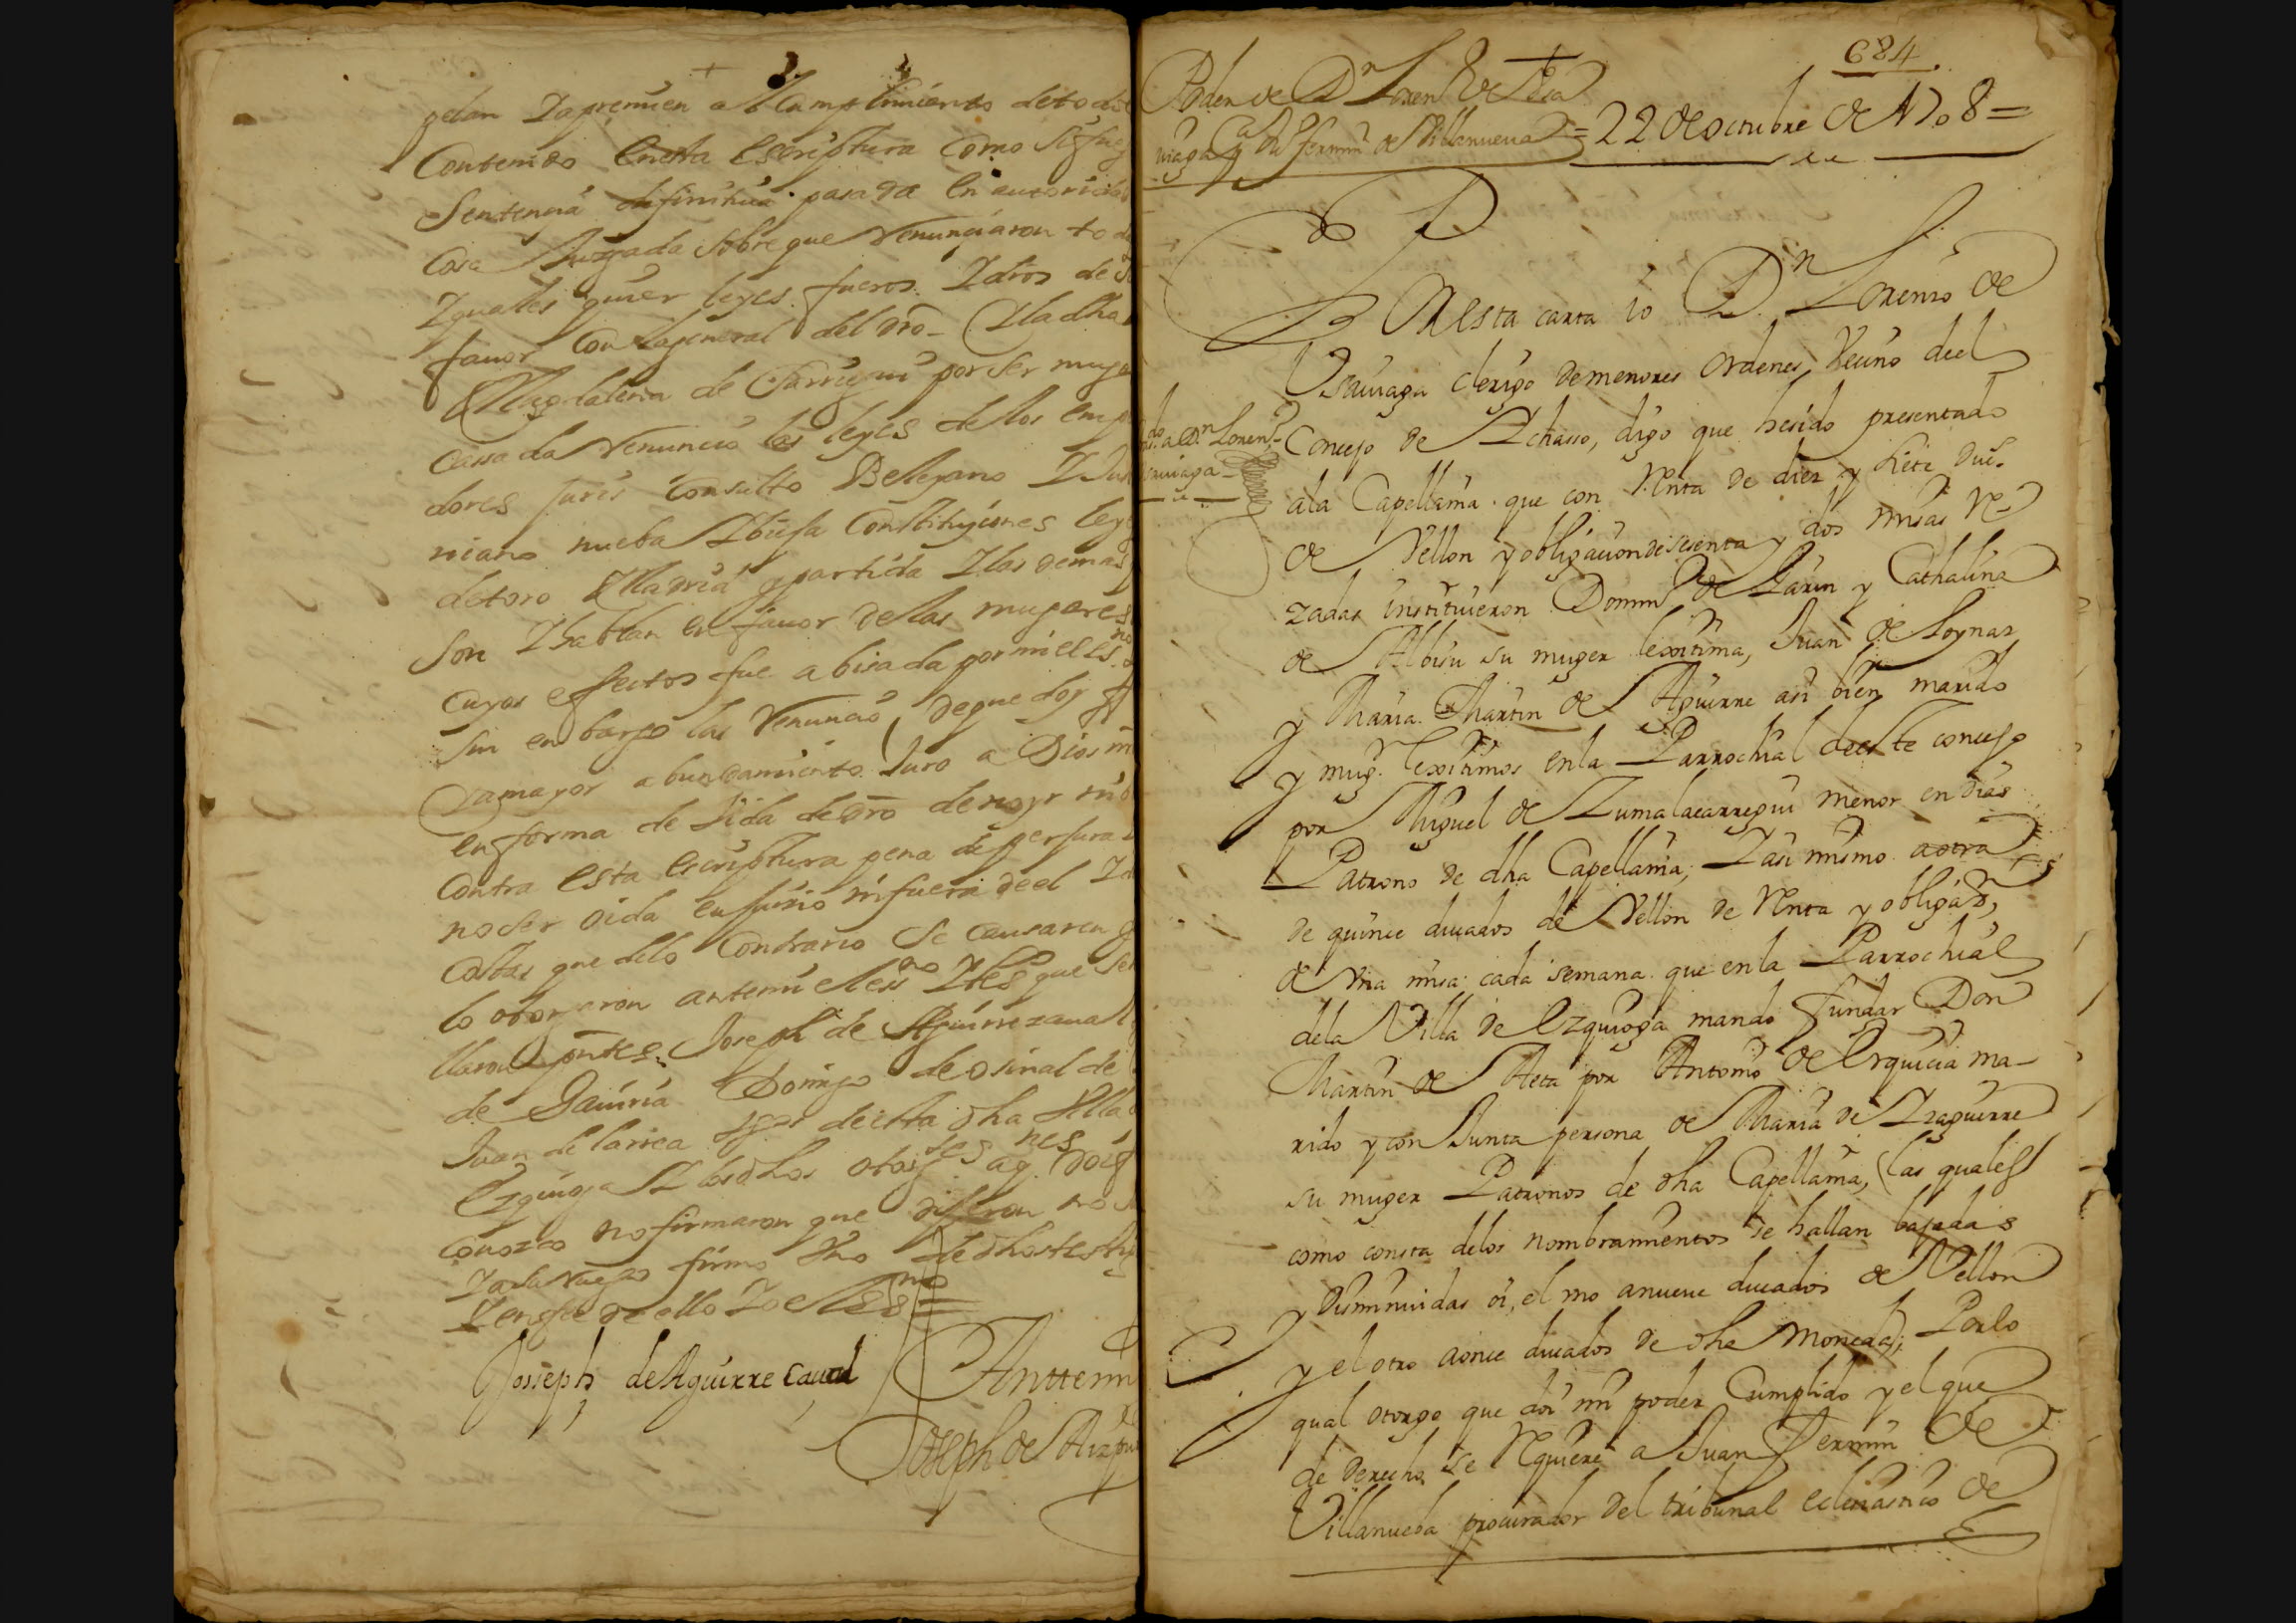 pelan Y apremien al Cumplimiento de todo
Contenido en esta escriptura como si fue
Sentencia difinitiua pasada en autorida
Cosa Juzgada sobre que renunciaron tod
Y quales quier leyes fueros Y dros de
fauor Con la general del dro - Y la dha
Magdalena de por ser muger
Cassada renuncio las leyes de los emp
dores Juris Consulto Belleyano
niano nueba Constituçiones leye
de toro Madrid y partida Y las demas
Son Y hablan en fauor de las mugeres
Cuyos effectos fue abisada por mi el essno
sin enbargo las renuncio, de que doy f
Y a mayor abundamiento Juro a Dios nr
en forma de vida de dro de no yr ni
Contra esta escriptura pena de perjura
no ser oida en juicio ni fuera de el Y
costas que de lo Contrario se causaren
lo otorgaron ante mi el essno Y tes que se
llaron pntes Joseph de Aguirrezaual
de Gauiria Domingo de osinal de
Juan de larrea de esta dha villa
Ezquioga Y los dhos otorgtes a qnes doi f
Conozco no firmaron que dijeron no s
Y a su ruego firmo Vno de dhos testig
Y en fee de ello Yo el essno =
Joseph de Aguirre Caual
Antte mi
Joseph de Aizpu
684
Poder de Dn Lorenzo de
uiaga Pa Ju fermin de Villanueua = 22 de octubre de 1708 =
Por esta carta io Dn Lorenzo de
Vsauiaga Clerigo de menores ordenes, Veçino del
Concejo de Ichasso, digo que he sido presentado
do a Dn Lorenzo
sauiaga
a la Capellania que con renta de diez y siete dus.
de Vellon y obligacion de sesenta y dos misas re-
zadas instituieron Domingo de Larin y Cathalina
de Albisu su muger lexitima, Juan de Loynaz
y Maria Martin de Aguirre asi bien marido
y mugr. lexitimos en la Parrochial de este concejo
por Miguel de Zumalacarregui menor en dias
Patrono de dha Capellania; Y asi mismo a otra
de quince ducados de Vellon de renta y obligaon,
de vna misa cada semana que en la Parrochial
de la Villa de Ezquioga mando fundar Don
Martin de Aeta por Antonio de Vrquicia ma-
rido y con Junta persona de Maria de Yzaguirre
su muger Patronos de dha Capellania, las quales
como consta de los nombramientos se hallan bajadas
y disminuidas oi, el mo a nueue ducados de Vellon
y el otro a once ducados de dha moneda; Por lo
qual otorgo que doi mi poder Cumplido y el que
de derecho se requiere a Juan Fermin de
Villanueba procurador del tribunal eclesiastico de